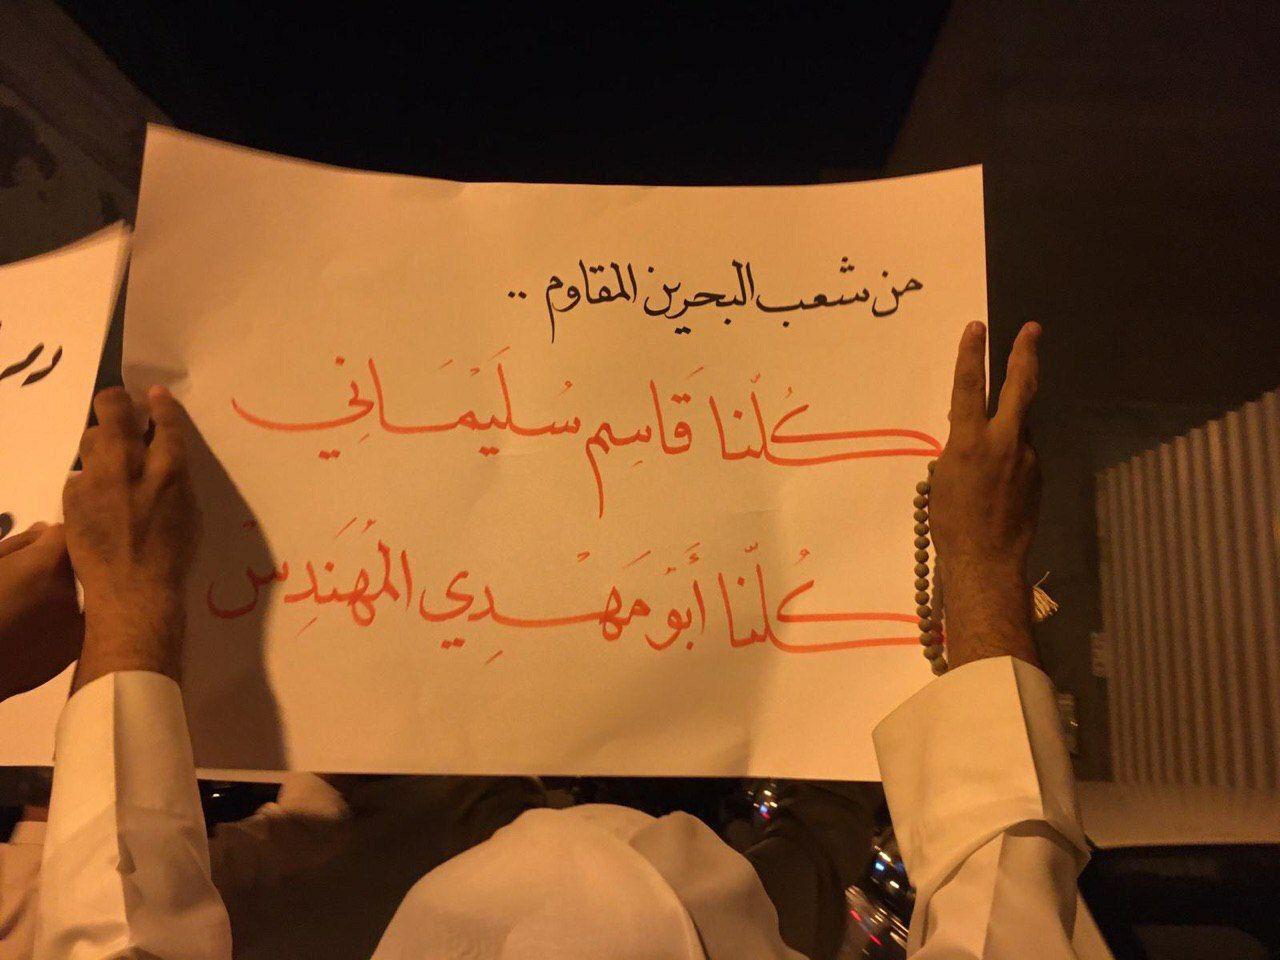 من شعب البحرين المقاوم ..
كُلّنا قَاسِم سُلَيْمَانِي
كُلّنا أَبُو مَهْدِي المُهَندِسْ